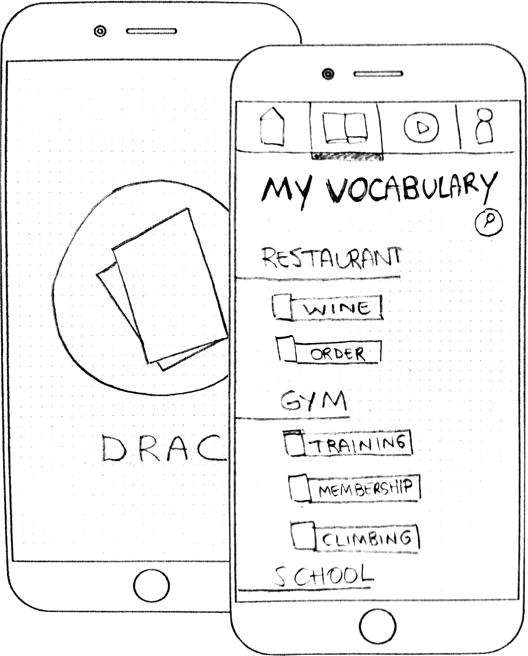 DRAC
MY VOCABULARY
RESTAURANT
WINE
ORDER
GYM
TRAINING
MEMBERSHIP
CLIMBING
SCHOOL